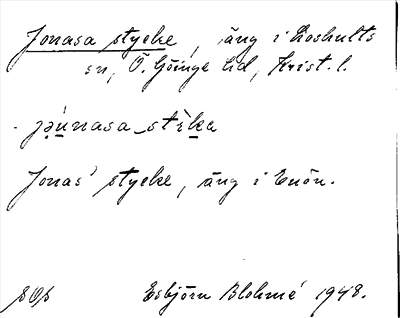 Jonasa stycke, äng i Loshults
sn, Ö. Göinge hd, Krist. l.
jạu̲nasa_stik̲a
Jonas' stycke, äng i Enön.
Esbjörn Blohmé 1948.